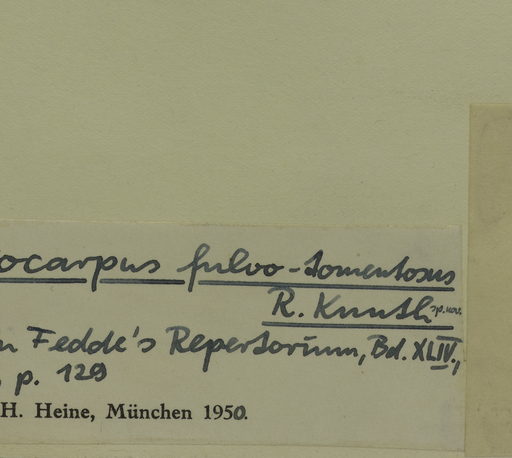 ocarpus fulvo-tomentosus
R. Knuth sp. nov.
n Fedde's Repertorium, Bd. XLIV.,
, p. 129
H. Heine, München 1950.